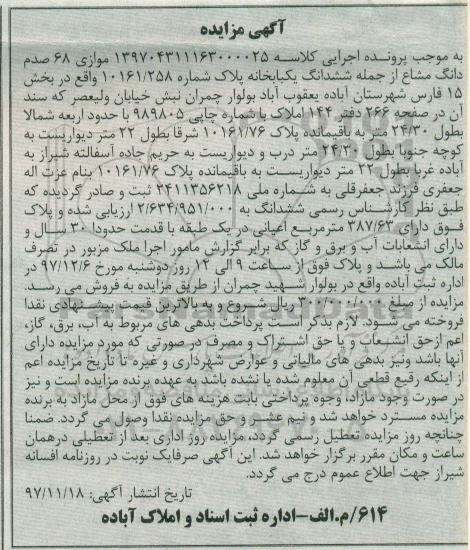 آگهی مزایده
به موجب پرونده اجرایی کلاسه ۱۳۹۷۰۴۳۱۱۱۶۳۰۰۰۰۲۵ موازی ۶۸ صدم
دانگ مشاع از جمله ششدانگ یکبابخانه پلاک شماره ۱۰۱۶۱/۲۵۸ واقع در بخش
۱۵ فارس شهرستان آباده یعقوب آباد بولوار چمران نبش خیابان ولیعصر که سند
آن در صفحه ۲۶۶ دفتر ۱۴۴ املاک با شماره چاپی ۹۸۹۸۰۵ با حدود اربعه شمالا
بطول ۲۴/۳۰ متر به باقیمانده پلاک ۱۰۱۶۱/۷۶ شرقا بطول ۲۲ متر دیواریست به
کوچه جنوبا بطول ۲۴/۳۰ متر درب و دیواریست به حریم جاده آسفالته شیراز به
آباده غربا بطول ۲۲ متر دیواریست به باقیمانده پلاک ۱۰۱۶۱/۷۶ بنام عزت اله
جعفری فرزند جعفرقلی به شماره ملی ۲۴۱۱۳۵۶۲۱۸ ثبت و صادر گردیده که
طبق نظر کارشناس رسمی ششدانگ به ۲/۶۳۴/۹۵۱/۰۰۰ ارزیابی شده و پلاک
فوق دارای ۳۸۷/۶۳ مترمربع اعیانی در یک طبقه با قدمت حدودا ۳۰ سال و
دارای انشعابات آب و برق و گاز که برابر گزارش مامور اجرا ملک مزبور در تصرف
مالک می باشد و پلاک فوق از ساعت ۹ الی ۱۲ روز دوشنبه مورخ ۹۷/۱۲/۶ در
اداره ثبت آباده واقع در بولوار شهید چمران از طریق مزایده به فروش می رسد.
مزایده از مبلغ ۳۰۰/۰۰۰/۰۰۰ ریال شروع و به بالاترین قیمت پیشنهادی نقدا
فروخته می شود. لازم بذکر است پرداخت بدهی های مربوط به آب، برق، گاز،
اعم ازحق انشعاب و یا حق اشتراک و مصرف در صورتی که مورد مزایده دارای
آنها باشد ونیز بدهی های مالیاتی و عوارض شهرداری و غیره تا تاریخ مزایده اعم
از اینکه رقم قطعی آن معلوم شده یا نشده باشد به عهده برنده مزایده است و نیز
در صورت وجود مازاد، وجوه پرداختی بابت هزینه های فوق از محل مازاد به برنده
مزایده مسترد خواهد شد و نیم عشر و حق مزایده نقدا وصول می گردد. ضمنا
چنانچه روز مزایده تعطیل رسمی گردد، مزایده روز اداری بعد از تعطیلی درهمان
ساعت و مکان مقرر برگزار خواهد شد. این آگهی صرفایک نوبت در روزنامه افسانه
شیراز جهت اطلاع عموم درج می گردد.
تاریخ انتشار آگهی: ۹۷/۱۱/۱۸
۶۱۴/م.الف-اداره ثبت اسناد و املاک آباده
ParsNamadData